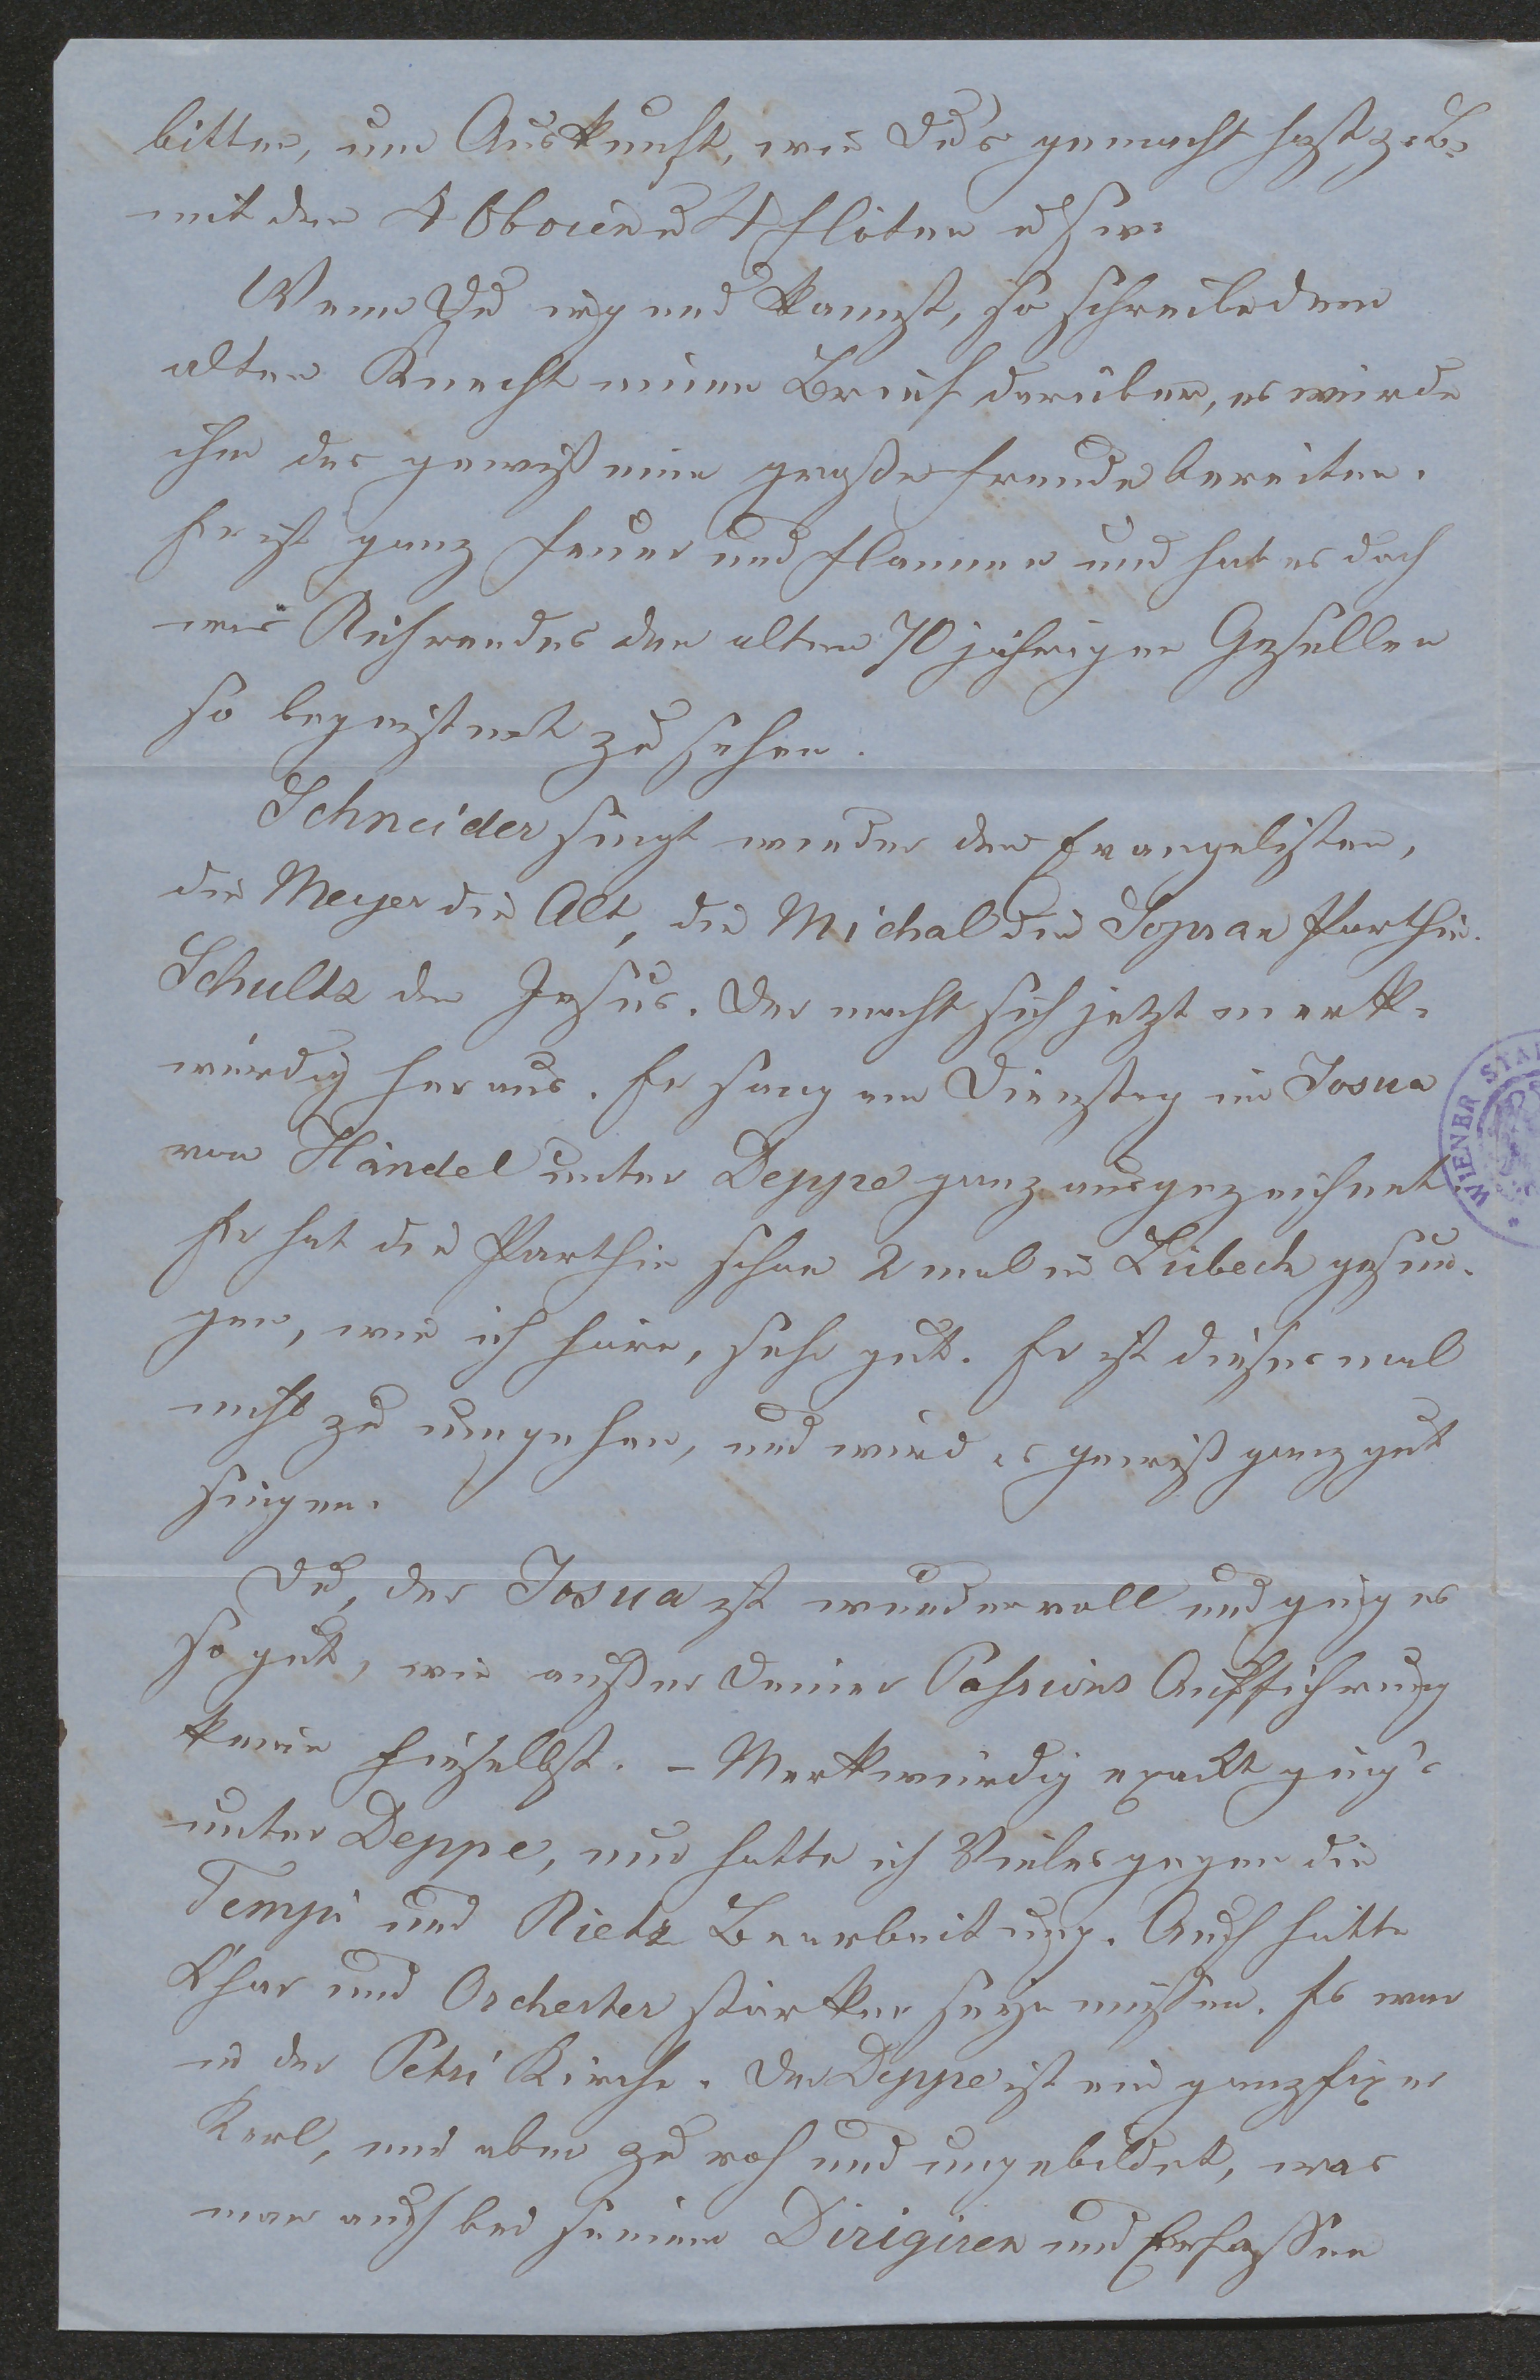 bitten, um Auskunft, wie Du's gemacht hast z. B.
mit den 4 Oboien u 4 Flöten u s w.
Wenn Du irgend kannst, so schreibe dem
alten Knecht einen Brief darüber, es würde
ihm das gewiß eine große Freude bereiten.
Er ist ganz Feuer und Flamme und hat es doch
was Rührendes den alten 70 jährigen Gesellen
so begeistert zu sehen.
Schneider singt wieder den Evangelisten,
die Meyer die Alt, die Michal die Sopran Parthie.
Schultz den Jesus. Der macht sich jetzt merk-
würdig heraus. Er sang am Dienstag im Josua
von Händel unter Deppe ganz ausgezeichnet
Er hat die Parthie schon 2 mal in Lübeck gesun-
gen, wie ich höre, sehr gut. Er ist dieses mal
nicht zu umgehen, und wird es gewiß ganz gut
singen.
Du, der Josua ist wundervoll und ging es
so gut, wie außer Deiner Passions Aufführung
keine hieselbst. – Merkwürdig exackt ging's
unter Deppe, nur hatte ich Vieles gegen die
Tempi und Rietz Bearbeitung. Auch hätte
Chor und Orchester stärker seyn müssen. Es war
in der Petri Kirche. Der Deppe ist ein ganz fixer
Kerl, nur eben zu roh und ungebildet, was
man auch bei seinem Dirigiren und Erfassen
WIENER STA